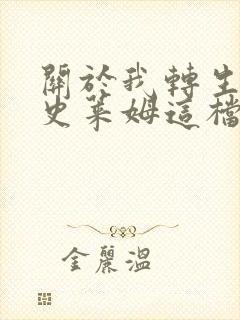 關於我轉生
史萊姆這檔
金麗溫